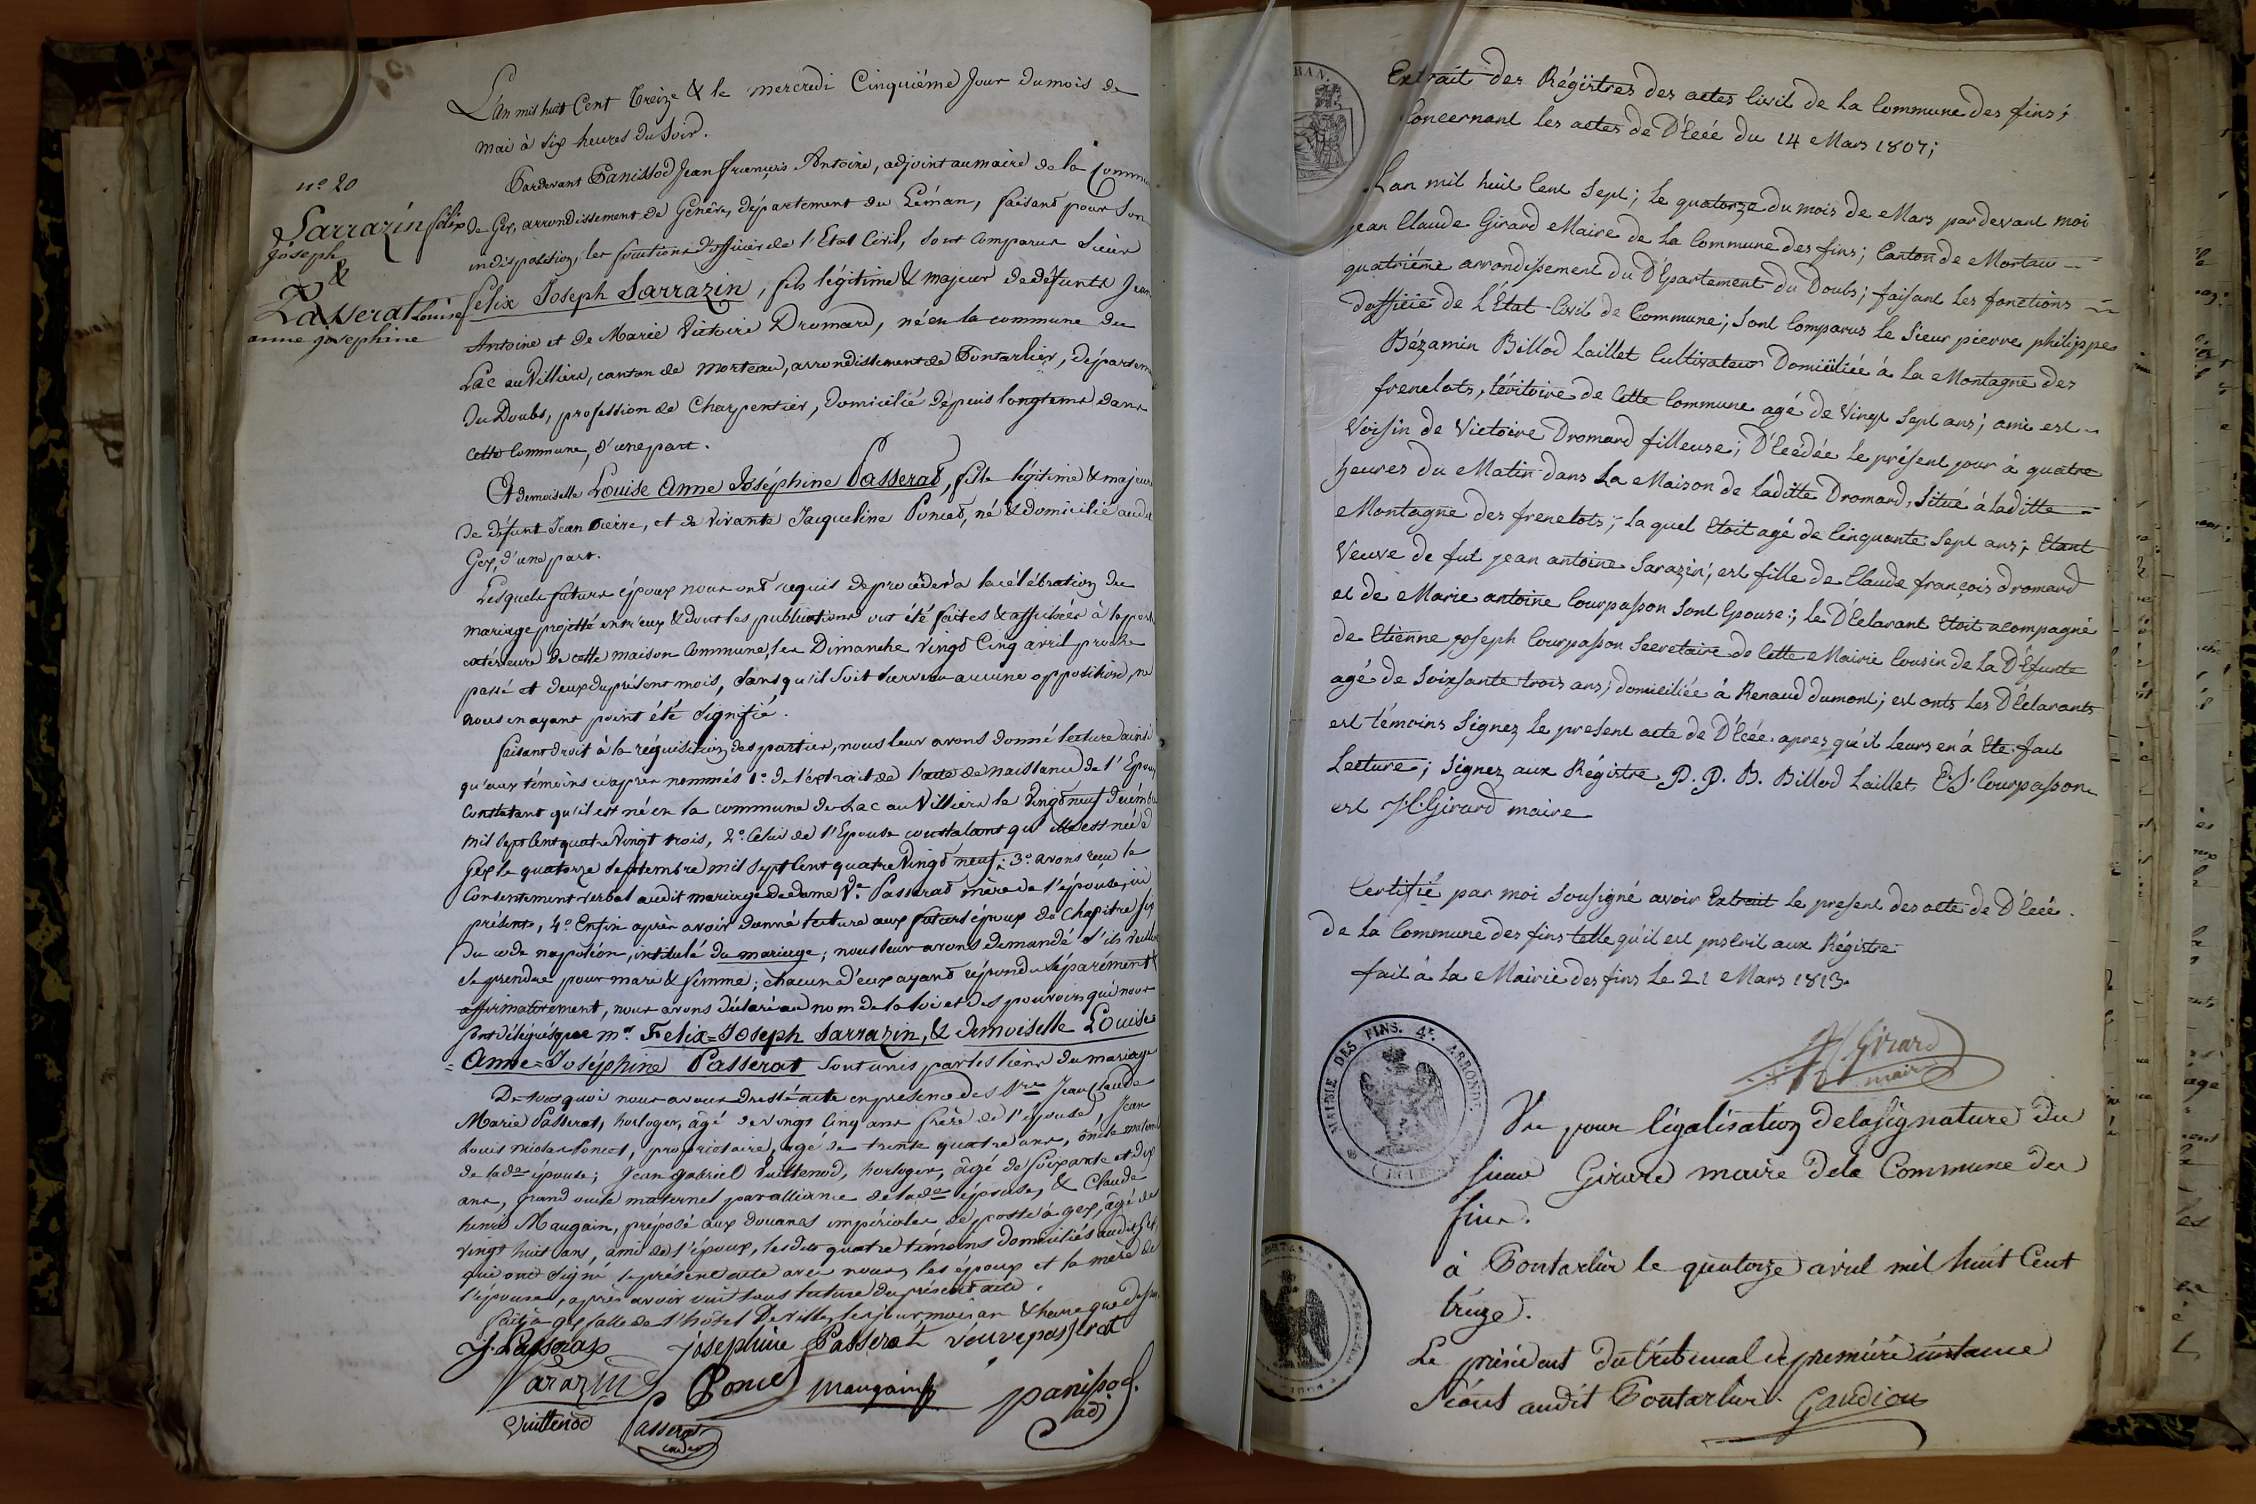 n.º 20
Sarrazin félix
joseph
&
Passerat Louise
anne josephine
L'an mil huit Cent treize & le mercredi Cinquiéme Jour du mois de
mai à six heures du soir.
Pardevant Panissod Jean françois Antoine, adjoint au maire de la Commu
de Gex, arrondissement de Genêve, département du Léman, faisant pour son
indisposition, les fonctions d'officier de l'Etat Civil, sont Comparus Sieur
felix Joseph Sarrazin, fils légitime & majeur de défunts Jean
Antoine et de Marie Victoire Dromard, né en la commune du
Lac au Villiers, canton de Morteau, arrondissement de Pontarlier, départem
du Doubs, profession de Charpentier, domicilié depuis longtems dans
cette Commune, d'une part.
Et demoiselle Louise Anne Joséphine Passerat, fille légitime & majeure
de défunt Jean Pierre, et de vivante Jacqueline Poncet, né & domicilié audit
Gex, d'une part.
Lesquels futurs époux nous ont requis de procéder à la célébration du
mariage projetté entr'eux & dont les publications ont été faites & affichées à la port
extérieure de cette maison Commune, les Dimanche vingt Cinq avril proche
passé et deux du présent mois, sans qu'il soit survenu aucune opposition, ne
nous en ayant point été signifié.
faisant droit à la réquisition des parties, nous leur avons donné lecture ainsi
qu'aux témoins ci après nommés 1.º de l'extrait de l'acte de naissance de l'Epoux
Constatant qu'il est né en la commune du Lac au Villiers le vingt neuf décemb
mil sept Cent quatre Vingt trois, 2.º Celui de l'Epouse constatant qu'elle est née à
Gex le quatorze septembre mil sept Cent quatre Vingt neuf; 3.º avons reçu le
Consentement verbal audit mariage de dame V.e Passerat mère de l'épouse, ici
présente, 4.º Enfin après avoir donné lecture aux futurs époux du Chapitre six
du code napoléon, intitulé du mariage; nous leur avons demandé s'ils veulle
se prendre pour mari & femme; chacun d'eux ayant répondu séparément &
affirmativement, nous avons déclaré au nom de la loi et des pouvoirs qui nous
sont délégués que m.r Felix=Joseph Sarrazin, & demoiselle Louise
=Anne=Joséphine Passerat sont unis par les liens du mariage
De tout quoi nous avons dressé acte en présence des S.rs Jean Claude
Marie Passerat, horloger, âgé de vingt Cinq ans frère de l'épouse, Jean
Louis Nicolas Poncet, propriétaire, âgé de trente quatre ans, oncle matern
de lad.e épouse; Jean gabriel Vuittenod, horloger, âgé de soixante et dix
ans, grand oncle maternel par alliance de lad.e épouse, & Claude
henri Maugain, préposé aux douanes impériales de poste à gex, âgé de
vingt huit ans, ami de l'époux, lesdits quatre témoins domiciliés audit Gex
qui ont signé le présent acte avec nous, les époux et la mère de
l'épouse, après avoir ouï tous lecture du présent acte.
fait à gex salle de l'hôtel De Ville, les jour, mois an & heure que dessus
J. Passerat josephine Passerat veuve passerat
Sarazin Poncet Maugain panissod
adj
Vuittenod Passerat
Extrait des Régistres des actes Civil de la Commune des fins;
Concernant les actes de D'Ecée du 14 Mars 1807;
L'an mil huit Cent Sept; le quatorze du mois de Mars pardevant moi
jean Claude Girard Maire de la Commune des fins; Canton de Morteau
quatriéme arrondissement du D'Epartement du Doubs; faisant les fonctions
d'officié de L'Etat Civil de Commune; Sont Comparus le Sieur pierre philippe
Bézamin Billod Laillet Cultivateur Domiciliée à la Montagne des
frenelots, téritoire de Cette Commune agé de Vingt Sept ans; ami est
Voisin de Victoire Dromard filleuse; D'Ecédée le présent jour à quatre
heures du Matin dans La Maison de laditte Dromard, Situé à laditte
Montagne des frenelots; la quel Etoit agé de Cinquante Sept ans; Etant
Veuve de fut jean antoine Sarazin; est fille de Claude françois dromard
et de Marie antoine Courpasson Sont Epouse; le D'Eclarant Etoit acompagné
de Etienne joseph Courpasson Secretaire de Cette Mairie Cousin de La D'Efunte
agé de Soixsante trois ans; domiciliée à Renaud dumont; est onts Les D'Eclarants
est témoins Signez Le present acte de D'Ecée. apres qu'il leurs en à Ete fait
Lecture; Signez aux Régistre P. P. B. Billod Laillet E. J. Courpasson
est J. C. Girard maire
Certifié par moi Sousigné avoir Extrait Le present des acte de D'Ecée
de la Commune des fins telle qu'il est inscrit aux Régistre
fait à La Mairie des fins Le 21 Mars 1813.
MAIRIE DES FINS. 4.e ARRONDT.
Girard
maire
Vu pour légalisation de la signature du
sieur Girard maire de la Commune des
fins.
à Pontarlier le quatorze avril mil huit Cent
treize.
Le président du tribunal de première instance
séant audit Pontarlier. Gaudion